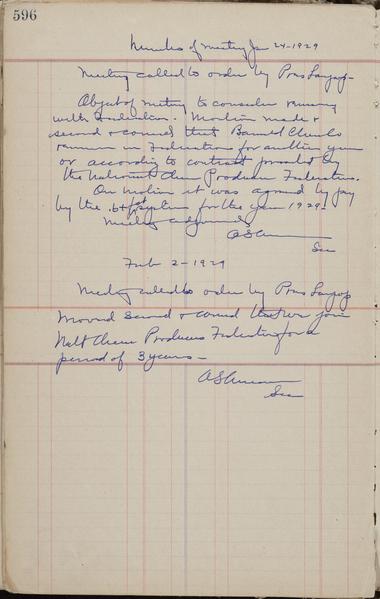 596
Minutes of meeting Jan 24-1929
Meeting called to order by Pres
Object of meeting to consider running
with Federation. Motion made &
second & carried that
remain in Federation for another year
or according to contract provided by
the National Cheese Producers Federation.
On motion it was agreed to pay
by the for the year 1929.
Meeting adjourned
Sec
Feb 2-1929
Meeting called to order by Pres
Moved second & carried that we join
Natl Cheese Producers Federation for a
period of 3 years-
Sec